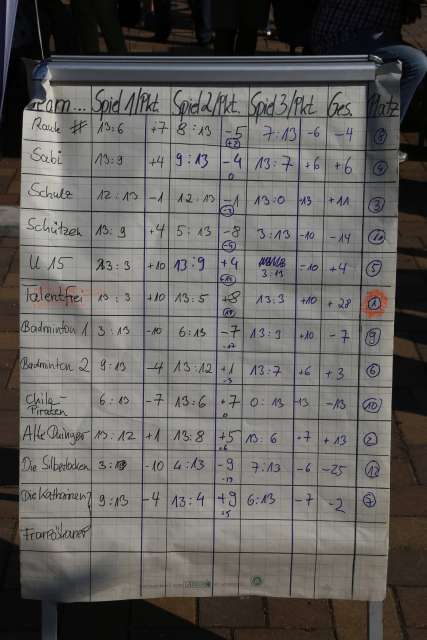 Team... Spiel 1/Pkt Spiel 2/Pkt. Spiel 3/Pkt Ges. Platz
Raule # 13:6 +7 8:13 -5 7:13 -6 -4 8
+2
Sabi 13:9 +4 9:13 -4 13:7 +6 +6 4
0
Schulz 12:13 -1 12:13 -1 13:0 13 +11 3
Schützen 13:9 +4 5:13 -8 3:13 -10 -14
-4
U 15 13:3 +10 13:9 +4 3:13 -10 +4 5
+14
Talentfrei 13:3 +10 13:5 +8 13:3 +10 +28 1
+18
Badminton 1 3:13 -10 6:13 -7 13:3 +10 -7 9
-17
Badminton 2 9:13 -4 13:12 +1 13:7 +6 +3 6
-3
Chila-
Piraten 6:13 -7 13:6 +7 0:13 -13 -13 10
0
Alte Dninger 13:12 +1 13:8 +5 13:6 +7 +13 2
+6
Die Silberlocken 3:13 -10 4:13 -9 7:13 -6 -25 12
-19
Die Katharinen 9:13 -4 13:4 +9 6:13 -7 -2 7
+5
Franziskaner